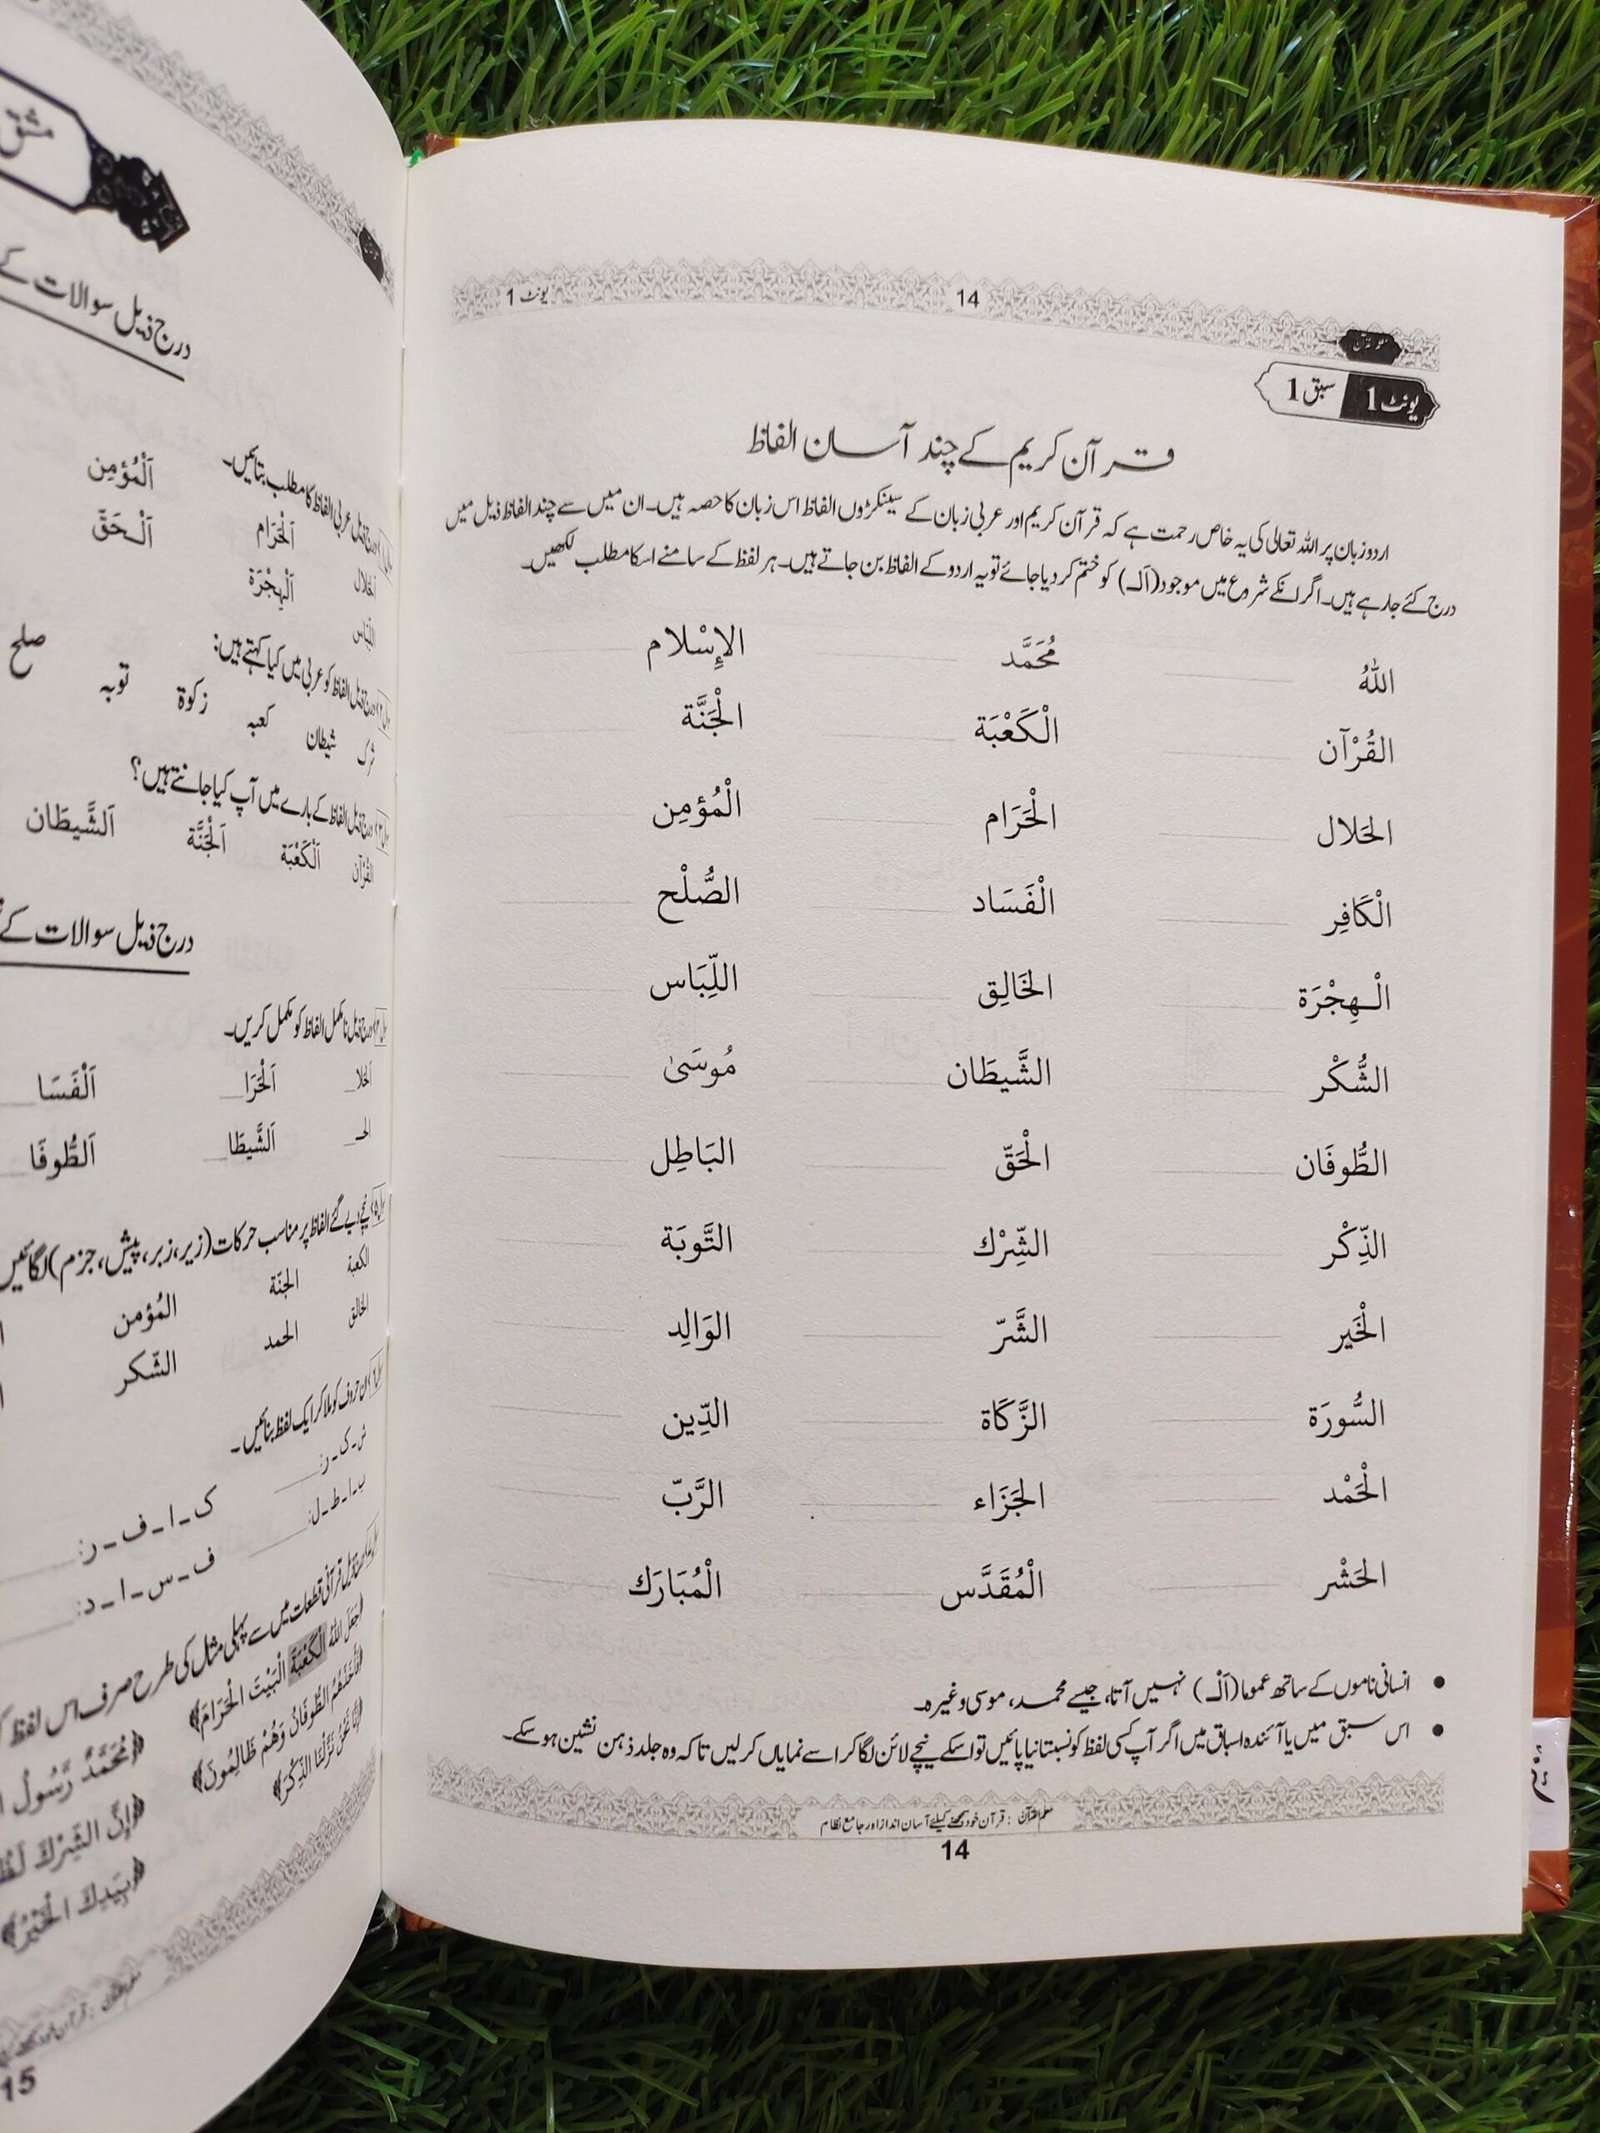 14
یونٹ 1
یونٹ 1 سبق 1
قرآن کریم کے چند آسان الفاظ
اردو زبان پر اللہ تعالی کی یہ خاص رحمت ہے کہ قرآن کریم اور عربی زبان کے سینکڑوں الفاظ اس زبان کا حصہ ہیں۔ ان میں سے چند الفاظ ذیل میں
درج کئے جا رہے ہیں۔ اگر انکے شروع میں موجود (اَلـ) کو ختم کر دیا جائے تو یہ اردو کے الفاظ بن جاتے ہیں۔ ہر لفظ کے سامنے اسکا مطلب لکھیں۔
اللهُ مُحَمَّد الإِسْلام
القُرْآن الْكَعْبَة الْجَنَّة
الحَلال الْحَرَام الْمُؤمِن
الْكَافِر الْفَسَاد الصُّلْح
الْهِجْرَة الخَالِق اللِّبَاس
الشُّكْر الشَّيطَان مُوسَىٰ
الطُّوفَان الْحَقّ البَاطِل
الذِّكْر الشِّرْك التَّوبَة
الْخَير الشَّرّ الوَالِد
السُّورَة الزَّكَاة الدِّين
الْحَمْد الجَزَاء الرَّبّ
الحَشْر الْمُقَدَّس الْمُبَارَك
• انسانی ناموں کے ساتھ عموما (اَلْـ) نہیں آتا، جیسے محمد، موسی وغیرہ۔
• اس سبق میں یا آئندہ اسباق میں اگر آپ کسی لفظ کو نسبتا نیا پائیں تو اسکے نیچے لائن لگا کر اسے نمایاں کر لیں تا کہ وہ جلد ذہن نشین ہو سکے۔
معلم القرآن : قرآن خود سمجھنے کیلئے آسان انداز اور جامع نظام
14
مشق
درج ذیل سوالات کے
درج ذیل عربی الفاظ کا مطلب بتائیں۔
الحَلال اَلْحَرَام اَلْمُؤمِن
اللِّبَاس اَلْهِجْرَة اَلْحَقّ
درج ذیل الفاظ کو عربی میں کیا کہتے ہیں:
شرک شیطان کعبہ زکوة توبہ صلح
درج ذیل الفاظ کے بارے میں آپ کیا جانتے ہیں؟
القُرْآن اَلْكَعْبَة اَلْجَنَّة اَلشَّيطَان
درج ذیل سوالات کے
درج ذیل نامکمل الفاظ کو مکمل کریں۔
اَلْحَرَا__ اَلْفَسَا__
اَلشَّيطَا__ اَلطُّوفَا__
نیچے دیے گئے الفاظ پر مناسب حرکات (زیر، زبر، پیش، جزم) لگائیں
الكعبة الجنّة المُؤمن
الخالق الحمد الشّكر
ان حروف کو ملا کر ایک لفظ بنائیں۔
ش-ک-ر: ک-ا-ف-ر:
ب-ا-ط-ل: ف-س-ا-د:
قرآنی قطعات میں سے پہلی مثال کی طرح صرف اس لفظ
جَعَلَ اللهُ الْكَعْبَةَ الْبَيْتَ الْحَرَامَ﴾ ﴿مُحَمَّدٌ رَّسُولُ
فَأَخَذَهُمُ الطُّوفَانُ وَهُمْ ظَالِمُونَ﴾ ﴿إِنَّ الشِّرْكَ لَظُ
إِنَّا نَحْنُ نَزَّلْنَا الذِّكْرَ﴾ ﴿بِيَدِكَ الْخَيْرُ﴾
15